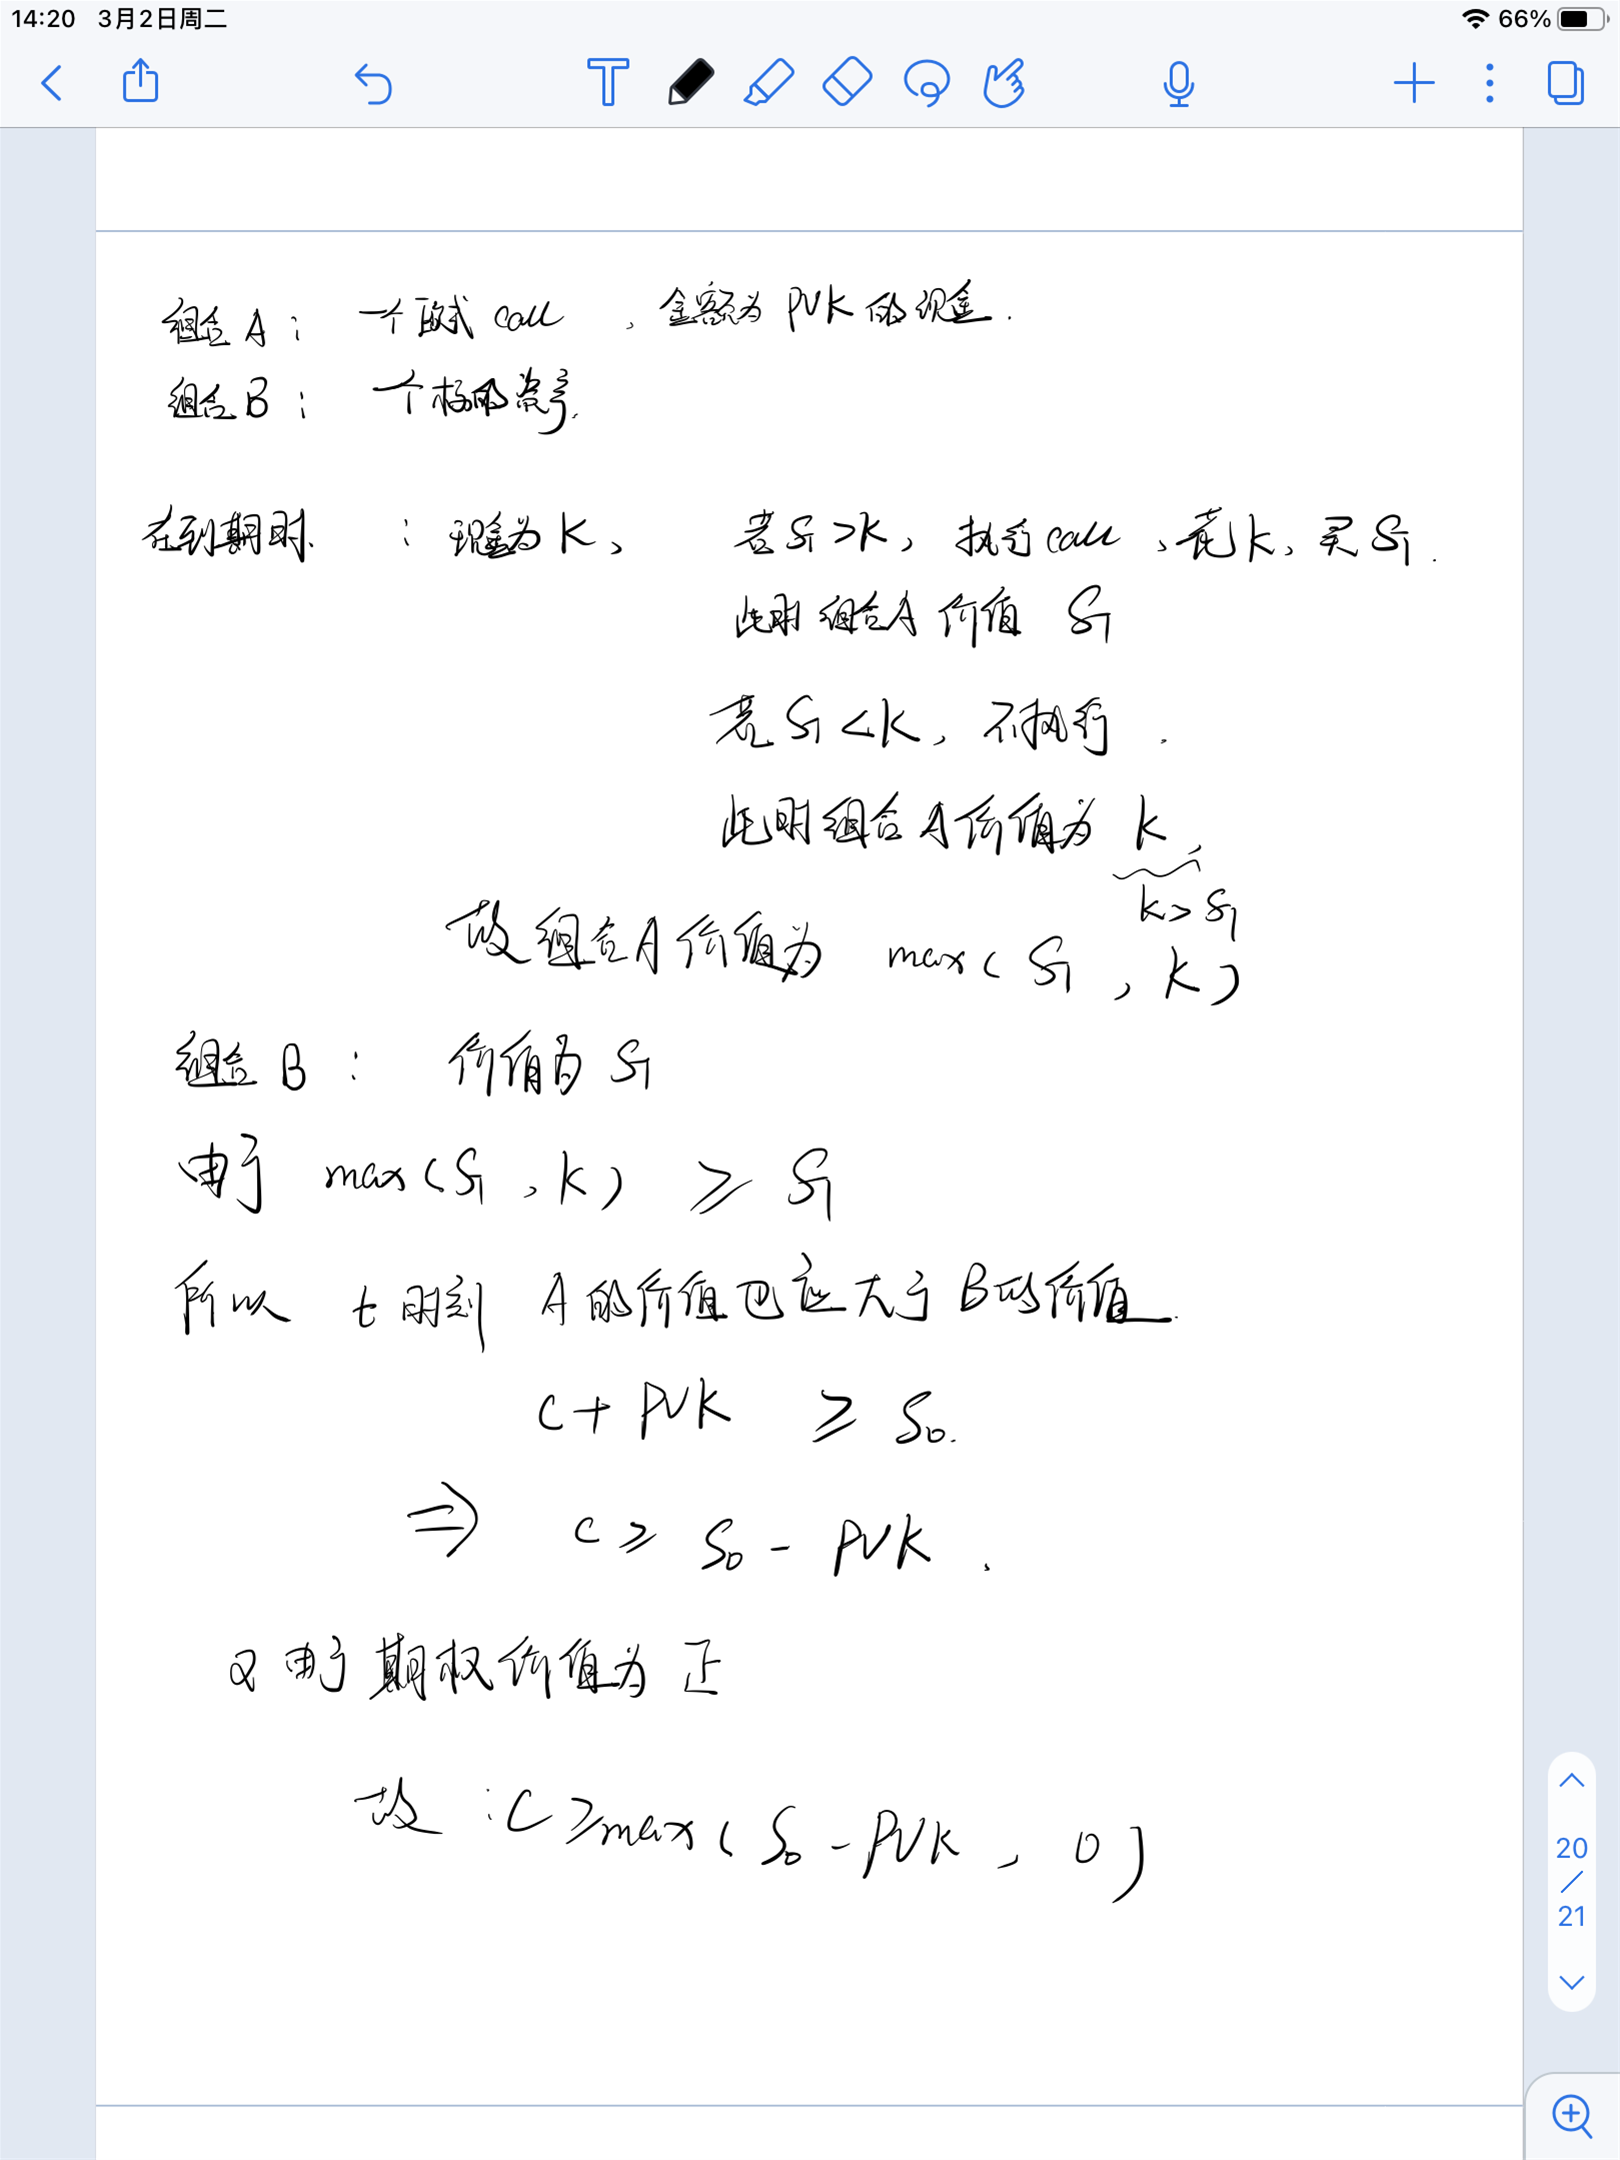 14:20 3月2日周二
66%
组合A: 一个欧式 call ,金额为 PVK 的现金.
组合B: 一个标的资产.
在到期时 : 现金为K, 若 ST >K, 执行call ,花K, 买 ST.
此时组合A 价值 ST
若 ST <K, 不执行.
此时组合A价值为 K,
K > ST
故组合A价值为 max( ST , K )
组合 B : 价值为 ST
由于 max( ST , K ) ≥ ST
所以 t 时刻 A的价值也应大于 B的价值.
c + PVK ≥ S0.
⇒ c ≥ S0 - PVK.
又由于 期权价值为正
故 : C ≥ max( S0 - PVK , 0 )
20
/
21